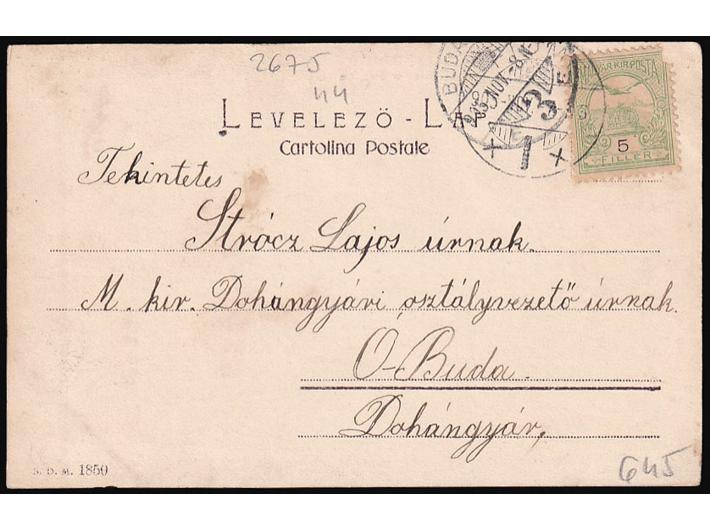 2675
44
LEVELEZŐ-LAP
Cartolina Postale
BUDA
905 NOV. 8.
3
1
MAGYAR KIR. POSTA
5
FILLÉR
Tekintetes
Strócz Lajos úrnak.
M. kir. Dohángyári osztályvezető úrnak.
O-Buda.
Dohángyár,
S. D. M. 1850
645